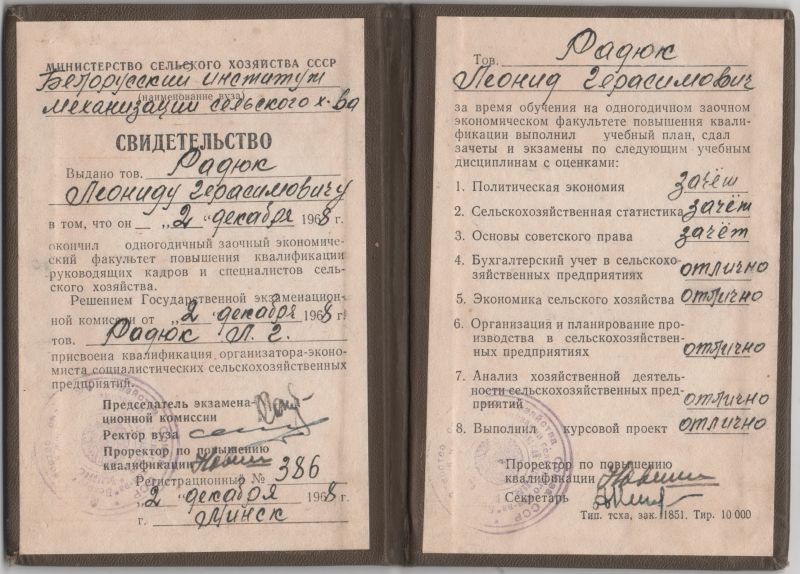 МИНИСТЕРСТВО СЕЛЬСКОГО ХОЗЯЙСТВА СССР
Белорусский институт
(наименование вуза)
механизации сельского х-ва
СВИДЕТЕЛЬСТВО
Выдано тов. Радюк
Леониду Герасимовичу
в том, что он „2“ декабря 1968 г.
окончил одногодичный заочный экономиче-
ский факультет повышения квалификации
руководящих кадров и специалистов сель-
ского хозяйства.
Решением Государственной экзаменацион-
ной комиссии от „2“ декабря 1968 г.
тов. Радюк Л. Г.
присвоена квалификация организатора-эконо-
миста социалистических сельскохозяйственных
предприятий.
Председатель экзамена-
ционной комиссии
Ректор вуза
Проректор по повышению
квалификации
Регистрационный № 386
„2“ декабря 1968 г.
г. Минск
Тов. Радюк
Леонид Герасимович
за время обучения на одногодичном заочном
экономическом факультете повышения квали-
фикации выполнил учебный план, сдал
зачеты и экзамены по следующим учебным
дисциплинам с оценками:
1. Политическая экономия зачёт
2. Сельскохозяйственная статистика зачёт
3. Основы советского права зачёт
4. Бухгалтерский учет в сельскохо-
зяйственных предприятиях отлично
5. Экономика сельского хозяйства отлично
6. Организация и планирование про-
изводства в сельскохозяйствен-
ных предприятиях отлично
7. Анализ хозяйственной деятель-
ности сельскохозяйственных пред-
приятий отлично
8. Выполнил курсовой проект отлично
Проректор по повышению
квалификации
Секретарь
Тип. тсха, зак. 1851. Тир. 10 000